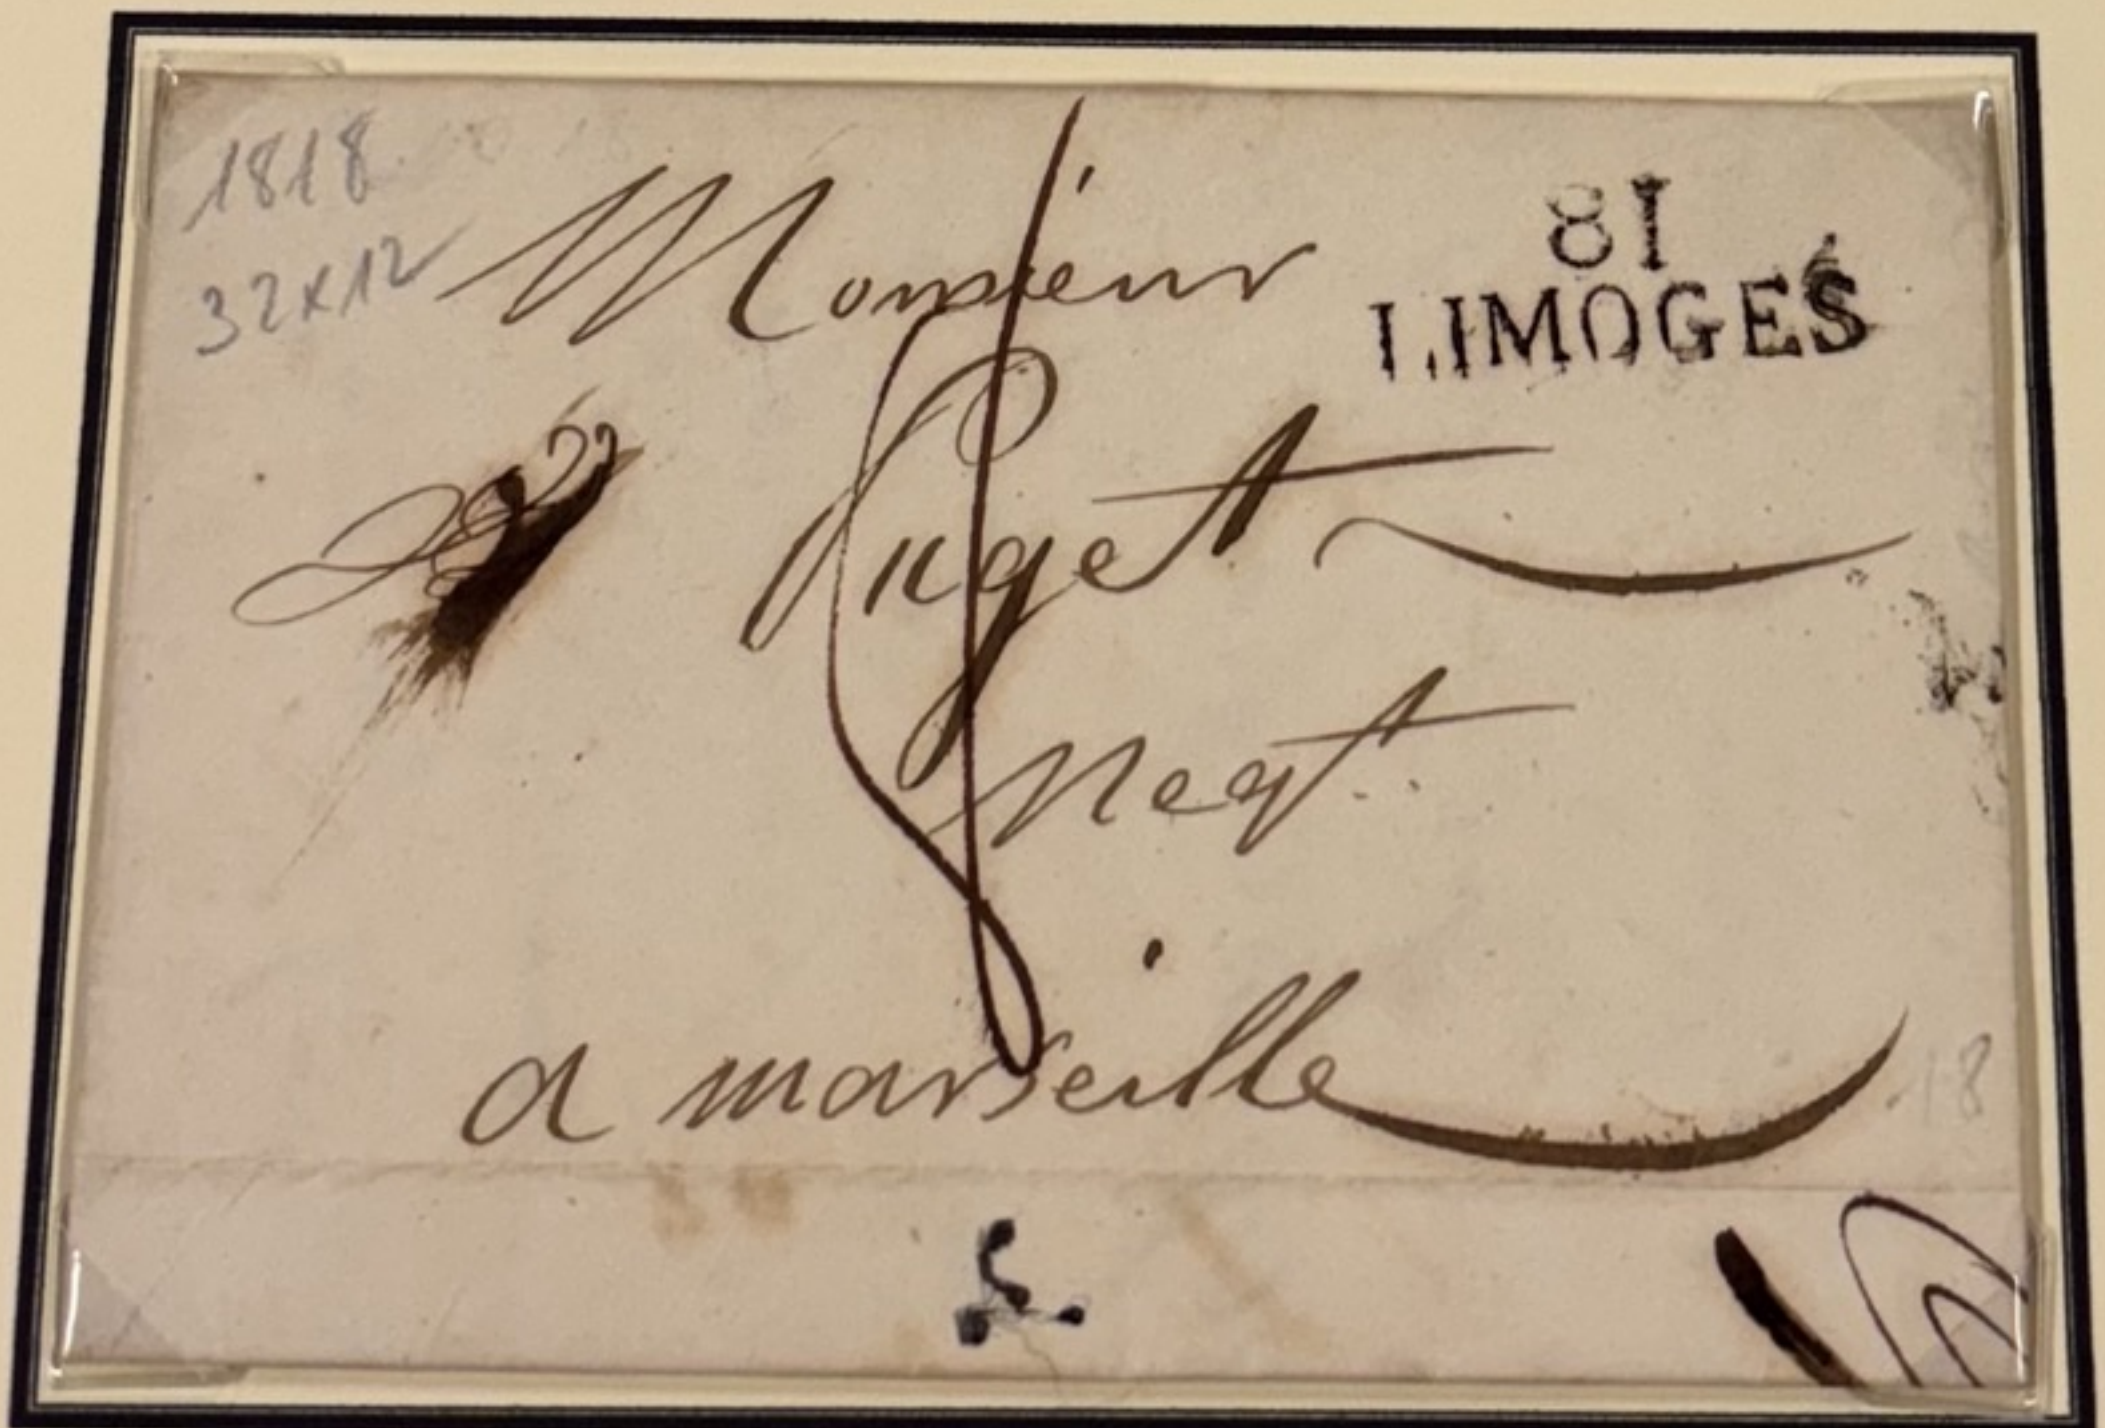 1818
32x12
81
LIMOGES
Monsieur
Puget
Negt.
a marseille
18